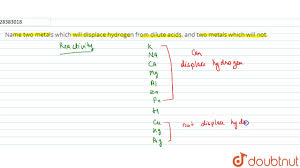 28383018
Name two metals which will displace hydrogen from dilute acids, and two metals which will not.
Reactivity
K
Na
Ca
Mg
Al
Zn
Fe
H
Cu
Hg
Ag
Can
displace hydrogen
not displace hyd
doubtnut